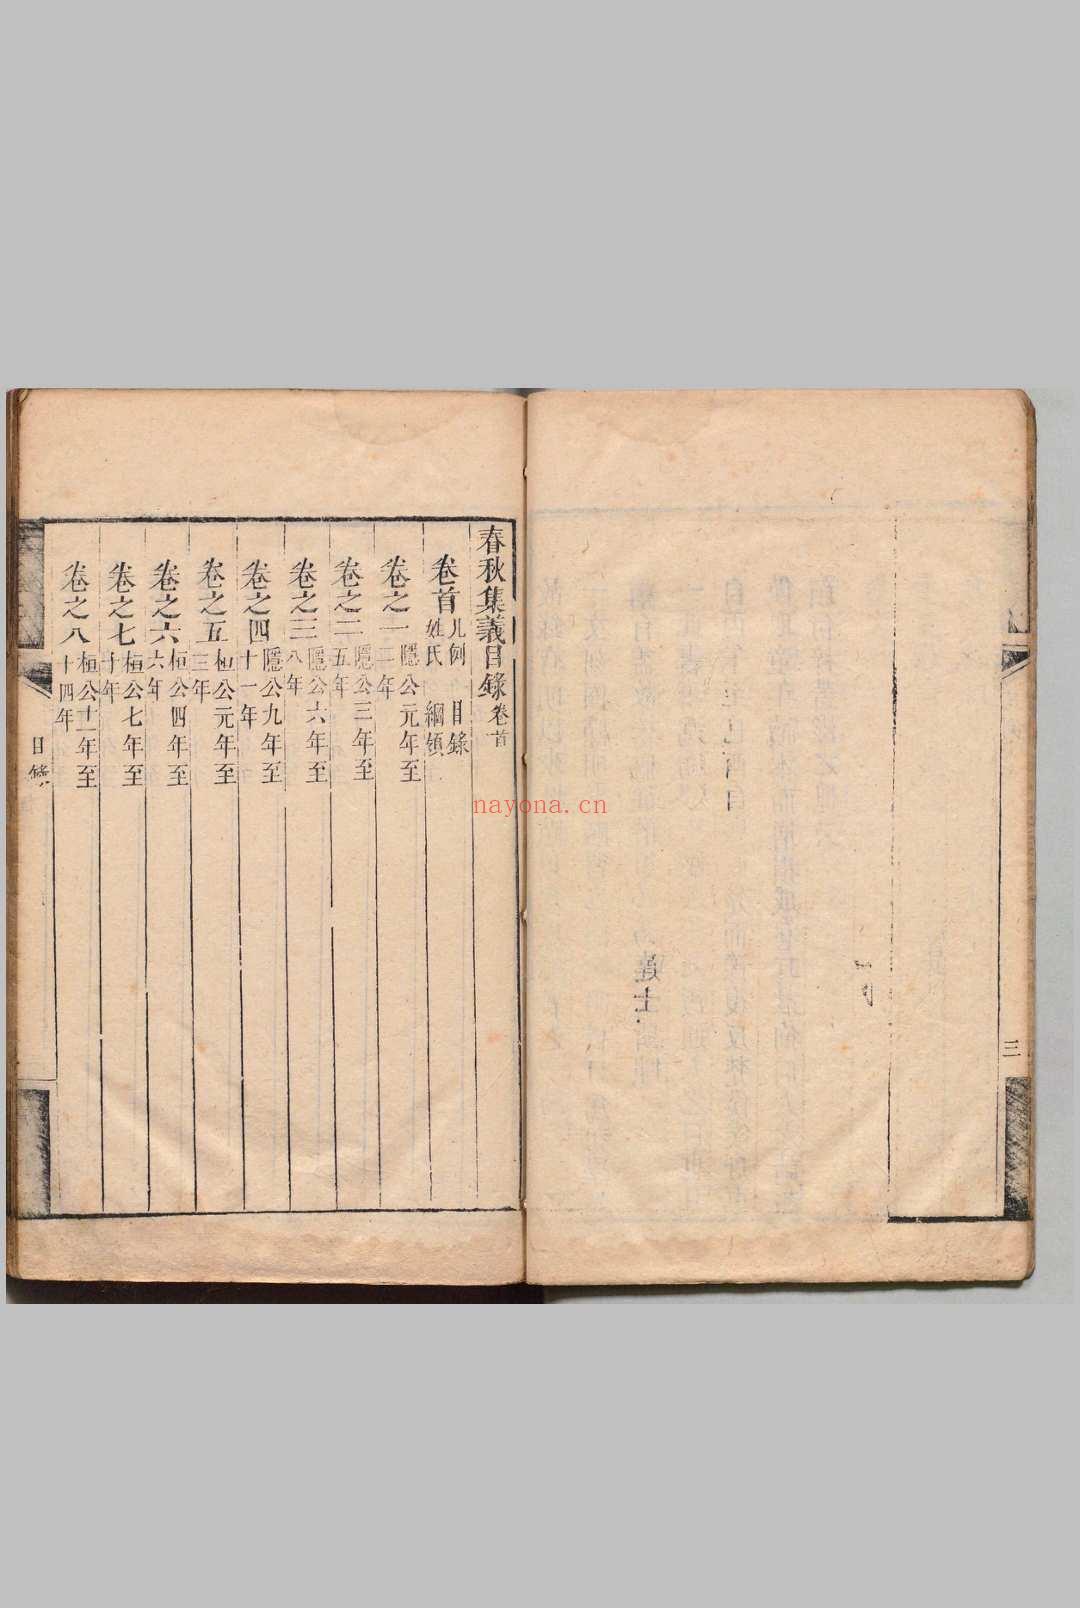 三
春秋集義目錄 卷首
卷首 凡例 目錄 姓氏 綱領
卷之一 隱公元年至二年
卷之二 隱公三年至五年
卷之三 隱公六年至八年
卷之四 隱公九年至十一年
卷之五 桓公元年至三年
卷之六 桓公四年至六年
卷之七 桓公七年至十年
卷之八 桓公十一年至十四年
目錄
nayona.cn